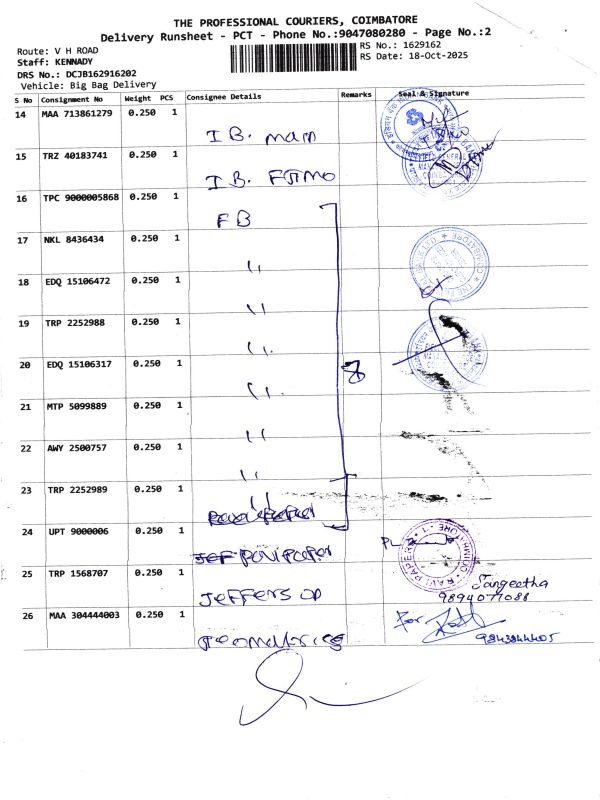 THE PROFESSIONAL COURIERS, COIMBATORE
Delivery Runsheet - PCT - Phone No.:9047080280 - Page No.:2
Route: V H ROAD
RS No.: 1629162
Staff: KENNADY
RS Date: 18-Oct-2025
DRS No.: DCJB162916202
Vehicle: Big Bag Delivery
S No Consignment No Weight PCS Consignee Details Remarks Seal & Signature
14 MAA 713861279 0.250 1
I B. main
15 TRZ 40183741 0.250 1
I B.
16 TPC 9000005868 0.250 1
FB
17 NKL 8436434 0.250 1
"
18 EDQ 15106472 0.250 1
"
19 TRP 2252988 0.250 1
"
20 EDQ 15106317 0.250 1 8
"
21 MTP 5099889 0.250 1
"
22 AWY 2500757 0.250 1
"
23 TRP 2252989 0.250 1
"
24 UPT 9000006 0.250 1
Ravi Paper
RAVI PAPERS COIMBATORE - 1
25 TRP 1568707 0.250 1
Jefferson
Sangeetha
9894071088
26 MAA 304444003 0.250 1
For
9843844405